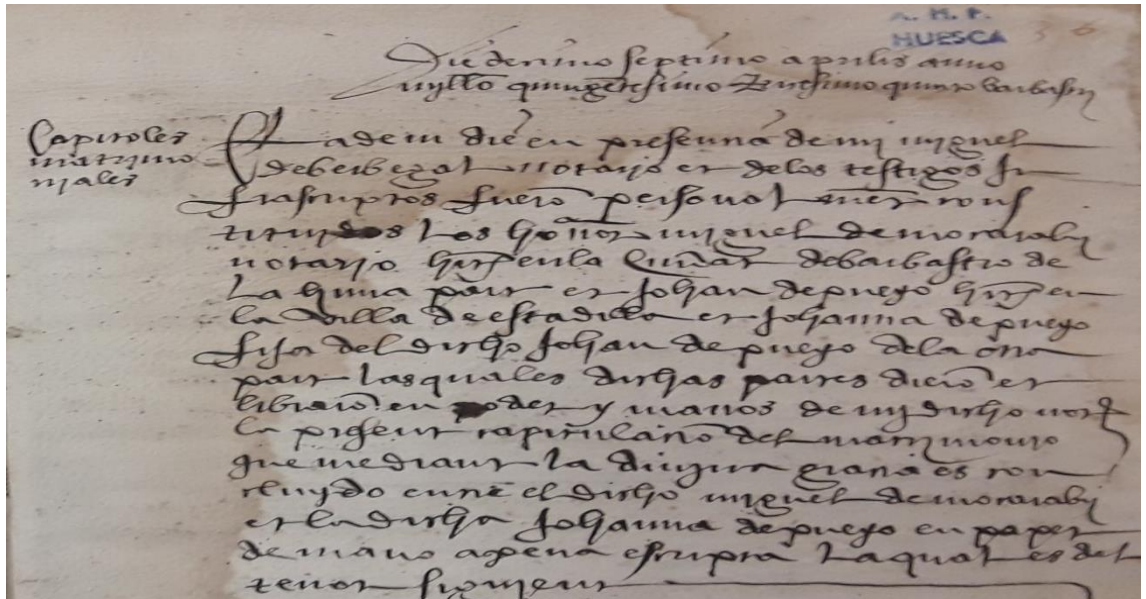 A. H. P.
HUESCA
36
Die decimo septimo aprilis anno
millo quingetesimo tricesimo quinto barbastri
Capitoles
matrimo
niales
Eadem die en presencia de mi miguel
de berbegal notario et de los testigos in
frascriptos fuero personalment cons
tituydos los honor miguel de
notario habit en la Ciudat de barbastro de
la huna part et Johan de pueyo habit en
la villa de estadilla et Johanna de pueyo
fija del dicho Johan de pueyo de la otra
part las quales dichas partes diero et
libraro en poder y manos de mi dicho not
la present capitulacio del matrimonio
que mediant la divina gracia es con
cluydo entre el dicho miguel de
et la dicha Johanna de pueyo en paper
de mano agena escripta la qual es del
tenor siguient